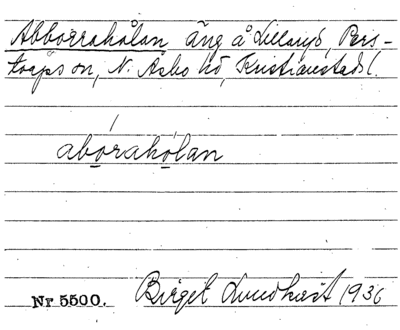 Abborrahålan äng å Lillaryd, Pers-
torps sn, N. Åsbo hd, Kristianstads l.
abórahólan
Nr 5500. Birget Lundkvist 1936